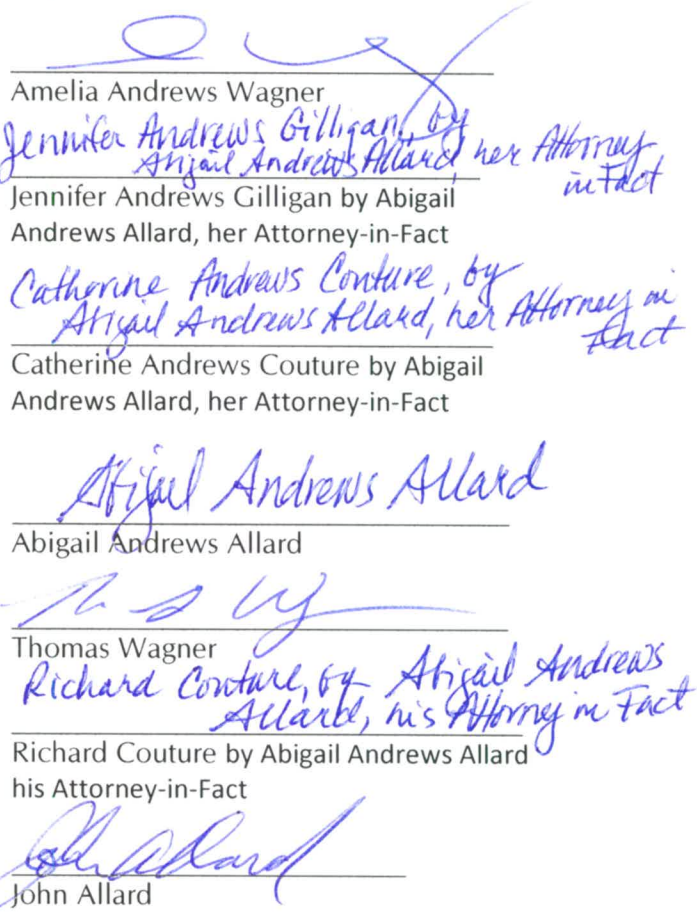 Amelia Andrews Wagner
Jennifer Andrews Gilligan, by
Abigail Andrews Allard, her Attorney
in Fact
Jennifer Andrews Gilligan by Abigail
Andrews Allard, her Attorney-in-Fact
Catherine Andrews Couture, by
Abigail Andrews Allard, her Attorney in
Fact
Catherine Andrews Couture by Abigail
Andrews Allard, her Attorney-in-Fact
Abigail Andrews Allard
Abigail Andrews Allard
Thomas Wagner
Richard Couture, by Abigail Andrews
Allard, his Attorney in Fact
Richard Couture by Abigail Andrews Allard
his Attorney-in-Fact
John Allard
John Allard